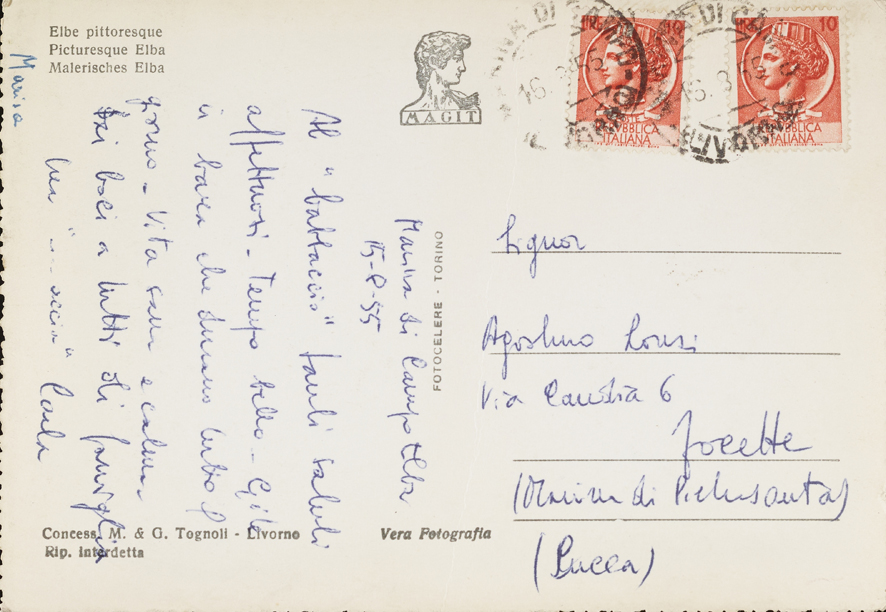 Elbe pittoresque
Picturesque Elba
Malerisches Elba
MAGIT
16.8.55
10
REPUBBLICA
ITALIANA
16.8.55
10
REPUBBLICA
ITALIANA
Marina di Campo Elba
15-8-55
Al "battaccio" tanti saluti
affettuosi - Tempo bello - Gite
in barca che durano tutto il
giorno - Vita sana e calma -
baci a tutti di famiglia
un Carla
Marisa
FOTOCELERE - TORINO
Signor
Agostino
Via 6
(Marina di Pietrasanta)
(Lucca)
Concess. M. & G. Tognoli - Livorno
Rip. Interdetta
Vera Fotografia